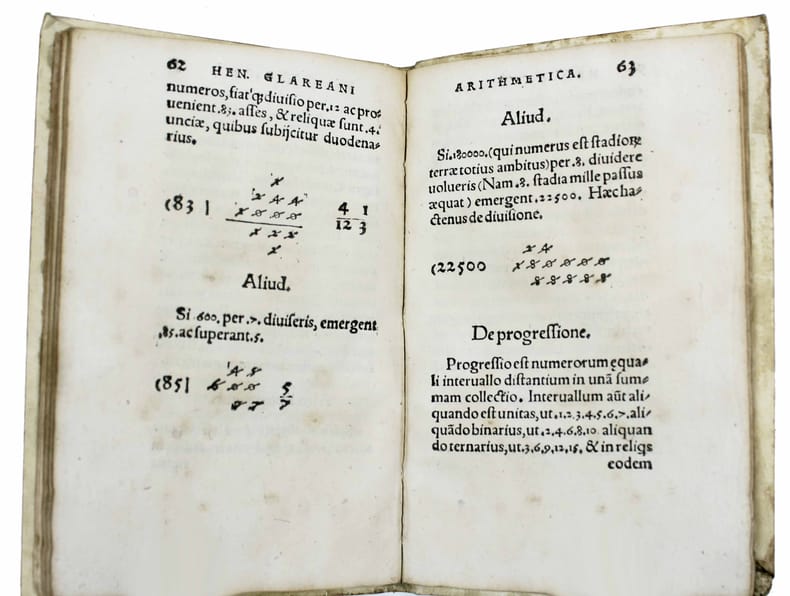 62 HEN. GLAREANI
numeros, fiat'q; diuisio per .12 ac pro⸗
uenient .83. asses, & reliquæ sunt .4.
unciæ, quibus subijcitur duodena⸗
rius.
(83 |
4 1
12 3
Aliud.
Si 600. per .7. diuiseris, emergent
.85. ac superant .5.
(85|
5
7
ARITHMETICA. 63
Aliud.
Si .180000. (qui numerus est stadioꝝ
terræ totius ambitus) per .8. diuidere
uolueris (Nam .8. stadia mille passus
æquat) emergent .22500. Hæc ha⸗
ctenus de diuisione.
(22500
De progressione.
Progressio est numerorum ęqua⸗
li interuallo distantium in unā sum⸗
mam collectio. Interuallum aūt ali⸗
quando est unitas, ut .1.2.3.4.5.6.7. ali⸗
quādo binarius, ut .2.4.6.8.10. aliquan
do ternarius, ut .3.6.9.12.15. & in reliqs
eodem